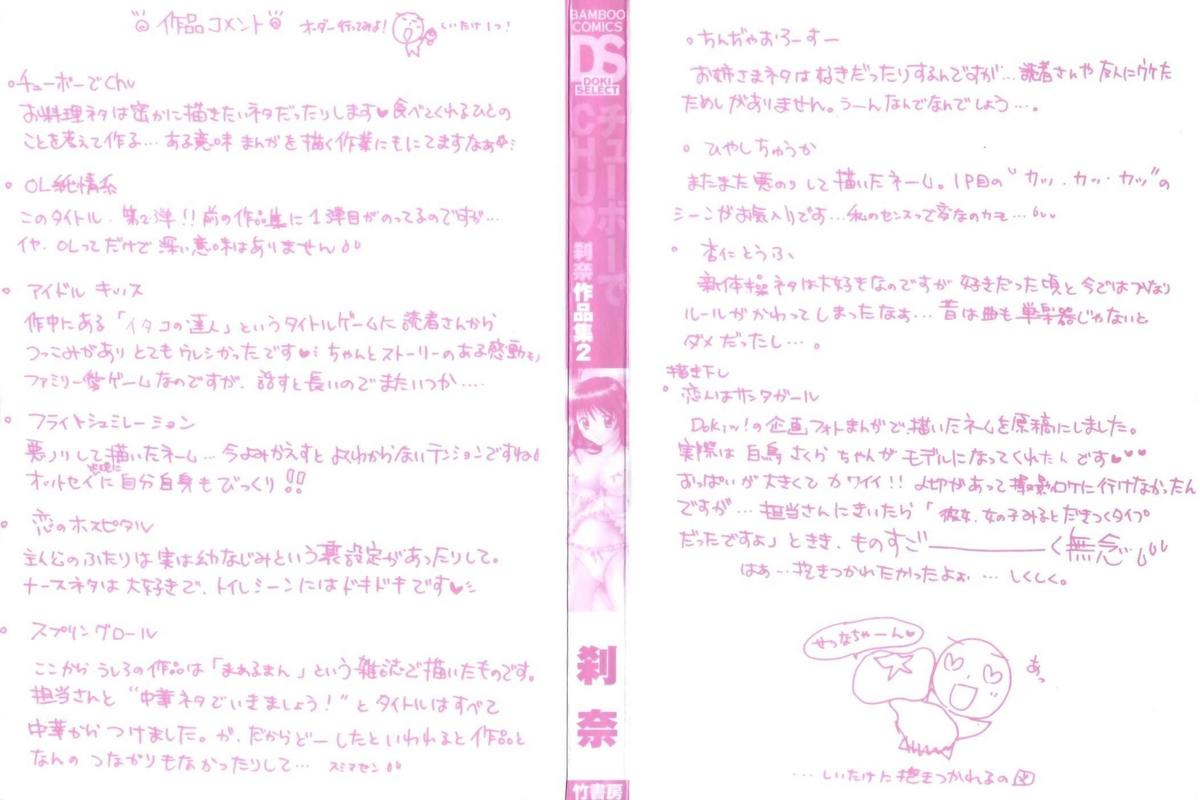 作品コメント
オーダー行ってみよ!
しいたけ1つ!
○チューボーでChu
お料理ネタは密かに描きたいネタだったりします♥食べてくれるひとの
ことを考えて作る…ある意味まんがを描く作業にもにてますなぁ
○ OL純情系
このタイトル、第2弾!!前の作品集に1弾目がのってるのですが…
イヤ、OLってだけで深い意味はありません
○ アイドルキッス
作中にある「イタコの達人」というタイトルゲームに読者さんから
つっこみがありとてもウレシかったです♥ちゃんとストーリーのある感動
ファミリー愛ゲームなのですが、話すと長いのでまたいつか…
○ フライトシュミレーション
悪ノリして描いたネーム…今よみかえすとよくわからないテンションですね
オットセイに自分自身もびっくり!!
○ 恋のホスピタル
主人公のふたりは実は幼なじみという裏設定があったりして。
ナースネタは大好きで、トイレシーンにはドキドキです♥
○ スプリングロール
ここからうしろの作品は「まぁるまん」という雑誌で描いたものです。
担当さんと"中華ネタでいきましょう!"とタイトルはすべて
中華からつけました。が、だからどーしたといわれると作品と
なんのつながりもなかったりして…スミマセン
BAMBOO
COMICS
DS
DOKI
SELECT
チューボーで
CHU♥
刹奈作品集2
刹奈
竹書房
○ ちんぢゃおろーすー
お姉さまネタは好きだったりするんですが…読者さんや友人にウケた
ためしがありません。うーんなんでなんでしょう…。
○ ひやしちゅうか
またまた悪のりして描いたネーム。1P目の"カッ、カッ、カッ"の
シーンがお気入りです…私のセンスって変なのカモ…
○ 杏仁とうふ
新体操ネタは大好きなのですが好きだった頃と今ではかなり
ルールがかわってしまったなぁ…昔は曲も単楽器じゃないと
ダメだったし…。
描き下し
○ 恋人はサンタガール
Doki!の企画フォトまんがで描いたネームを原稿にしました。
実際は白鳥さくらちゃんがモデルになってくれたんです♥♥♥
おっぱいが大きくてカワイイ!!〆切があって撮影ロケに行けなかったん
ですが…担当さんにきいたら「彼女、女の子みるとだきつくタイプ
だったですよ」ときき、ものすご――――く無念…。
はぁ…抱きつかれたかったよぉ…しくしく。
せつなちゃーん♥
あっ
…しいたけに抱きつかれるの図